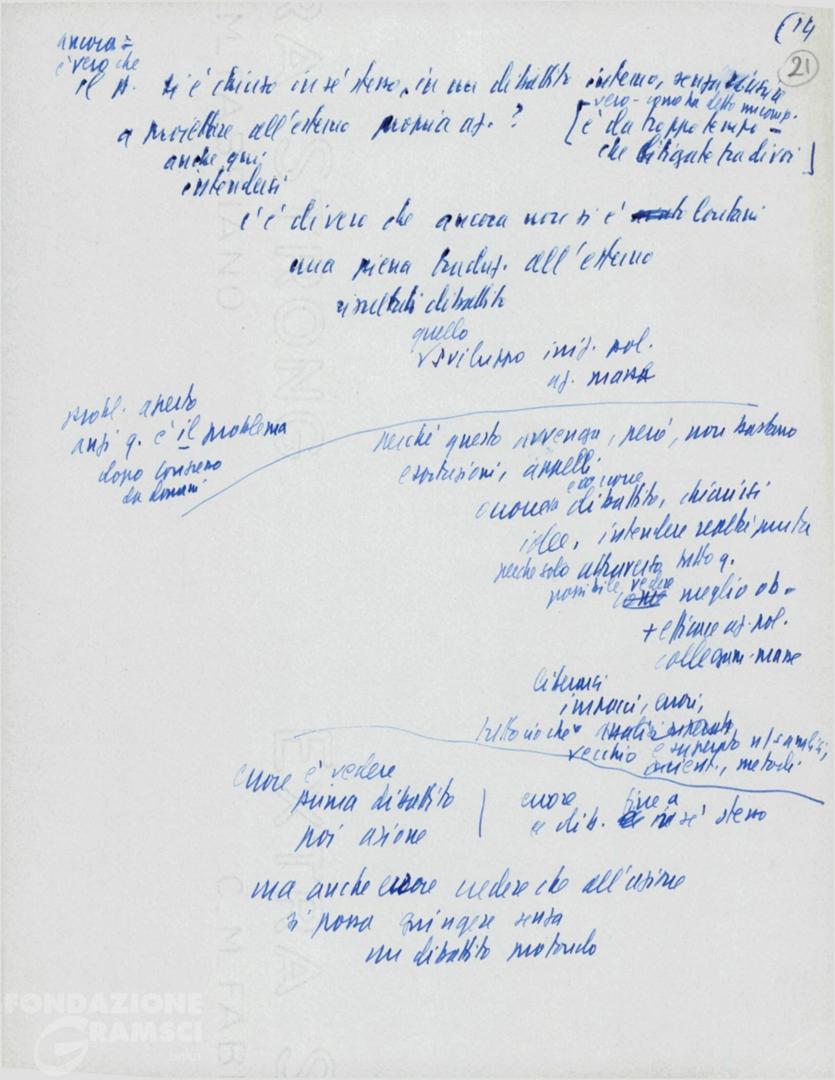 (14
21
ancora =
è vero che
il p. si è chiuso in sé stesso, in un dibattito interno, senza
a proiettare all'esterno propria az. ?
vero - come ha detto un comp.
[è da troppo tempo -
che litigate tra di voi]
anche qui
intendersi
c'è di vero che ancora non si è lontani
una piena traduz. all'esterno
risultati dibattito
quello
sviluppo iniz. pol.
az. massa
probl. aperto
anzi q. è il problema
dopo congresso
da domani
perché questo avvenga, però, non bastano
esortazioni, appelli
occorre
ancora dibattito, chiarirsi
idee, intendere realtà mutata
perché solo attraverso tutto q.
possibile vedere
meglio ob.
+ efficace az. pol.
collegam. masse
liberarci
impacci, errori,
tutto ciò che
vecchio è superato n/ analisi,
orient., metodi
errore è vedere
prima dibattito
poi azione
errore fine a
è dib. in sé stesso
ma anche errore credere che all'azione
si possa giungere senza
un dibattito profondo
FONDAZIONE
GRAMSCI
EXTRA STRONG
FABRIANO
C.M. FABRIANO